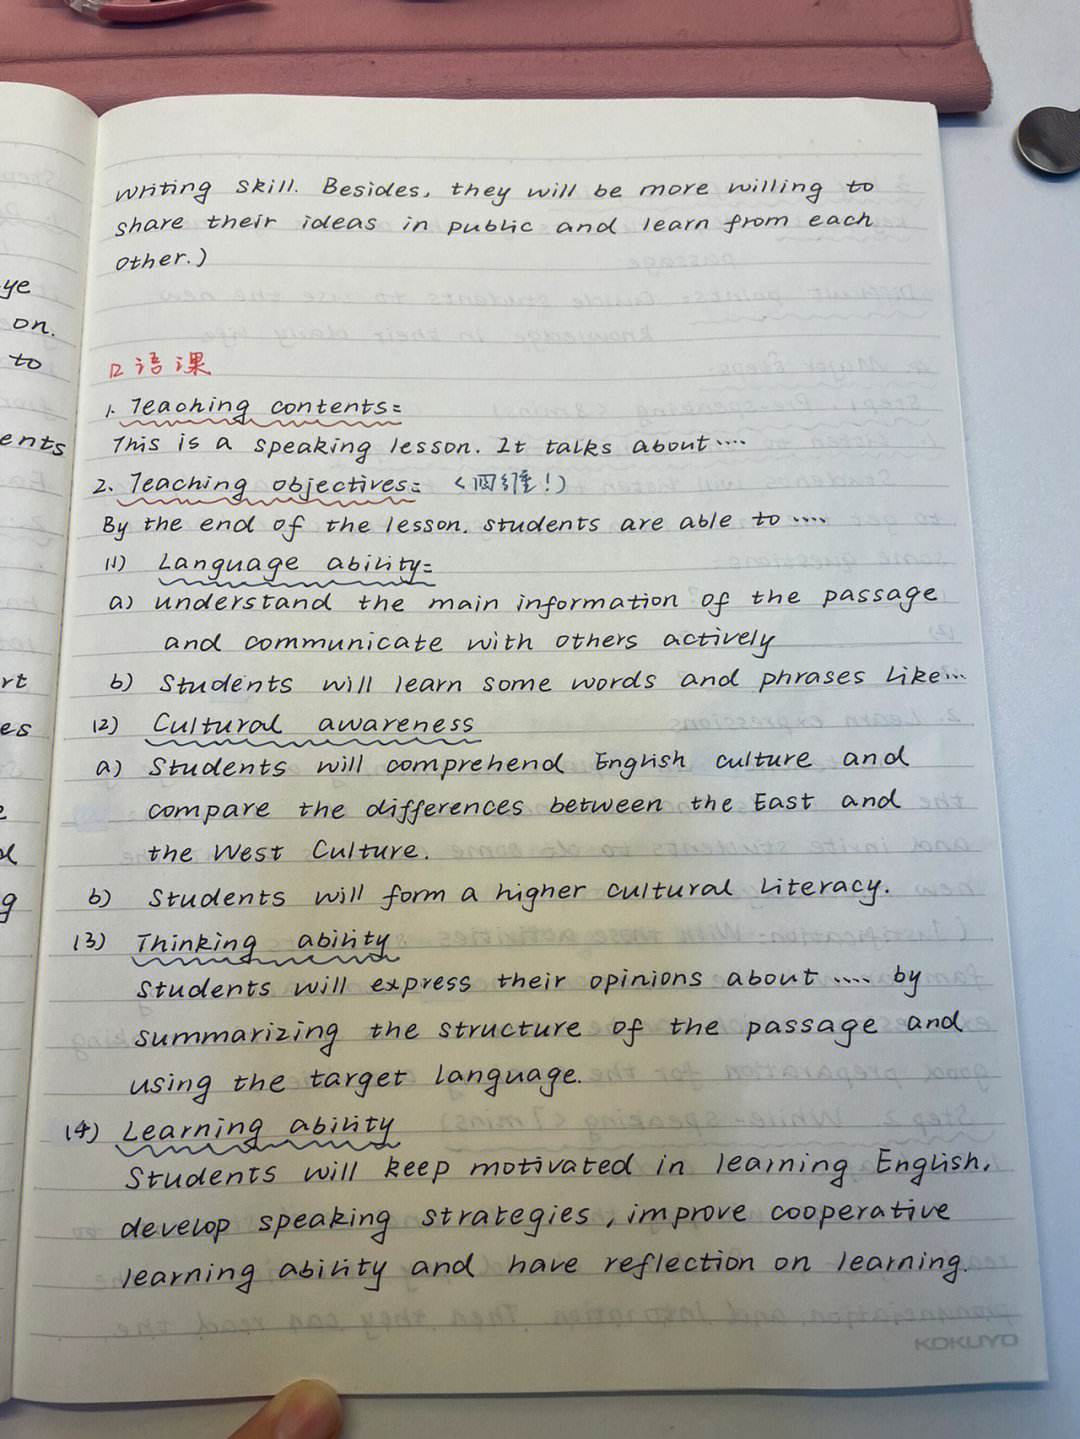 writing skill. Besides, they will be more willing to
share their ideas in public and learn from each
other.)
口语课
1. Teaching contents:
This is a speaking lesson. It talks about ....
2. Teaching objectives: (四维!)
By the end of the lesson, students are able to ....
(1) Language ability:
a) understand the main information of the passage
and communicate with others actively
b) Students will learn some words and phrases like...
(2) Cultural awareness
a) Students will comprehend English culture and
compare the differences between the East and
the West Culture.
b) Students will form a higher cultural literacy.
(3) Thinking ability
Students will express their opinions about .... by
summarizing the structure of the passage and
using the target language.
(4) Learning ability
Students will keep motivated in learning English,
develop speaking strategies, improve cooperative
learning ability and have reflection on learning.
KOKUYO
ye
on.
to
ents
rt
es
g